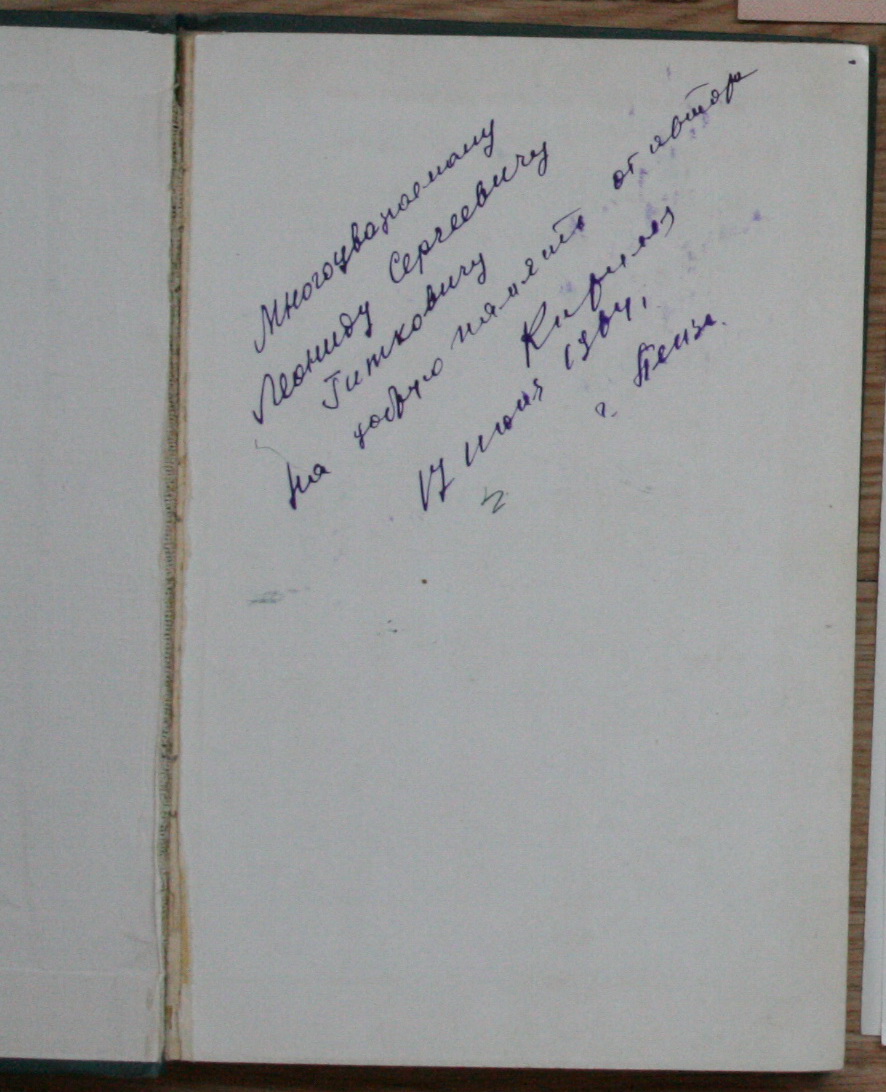 Многоуважаемому
Леониду Сергеевичу
Гитковичу
на добрую память от автора
17 июня 1964,
г. Пенза.